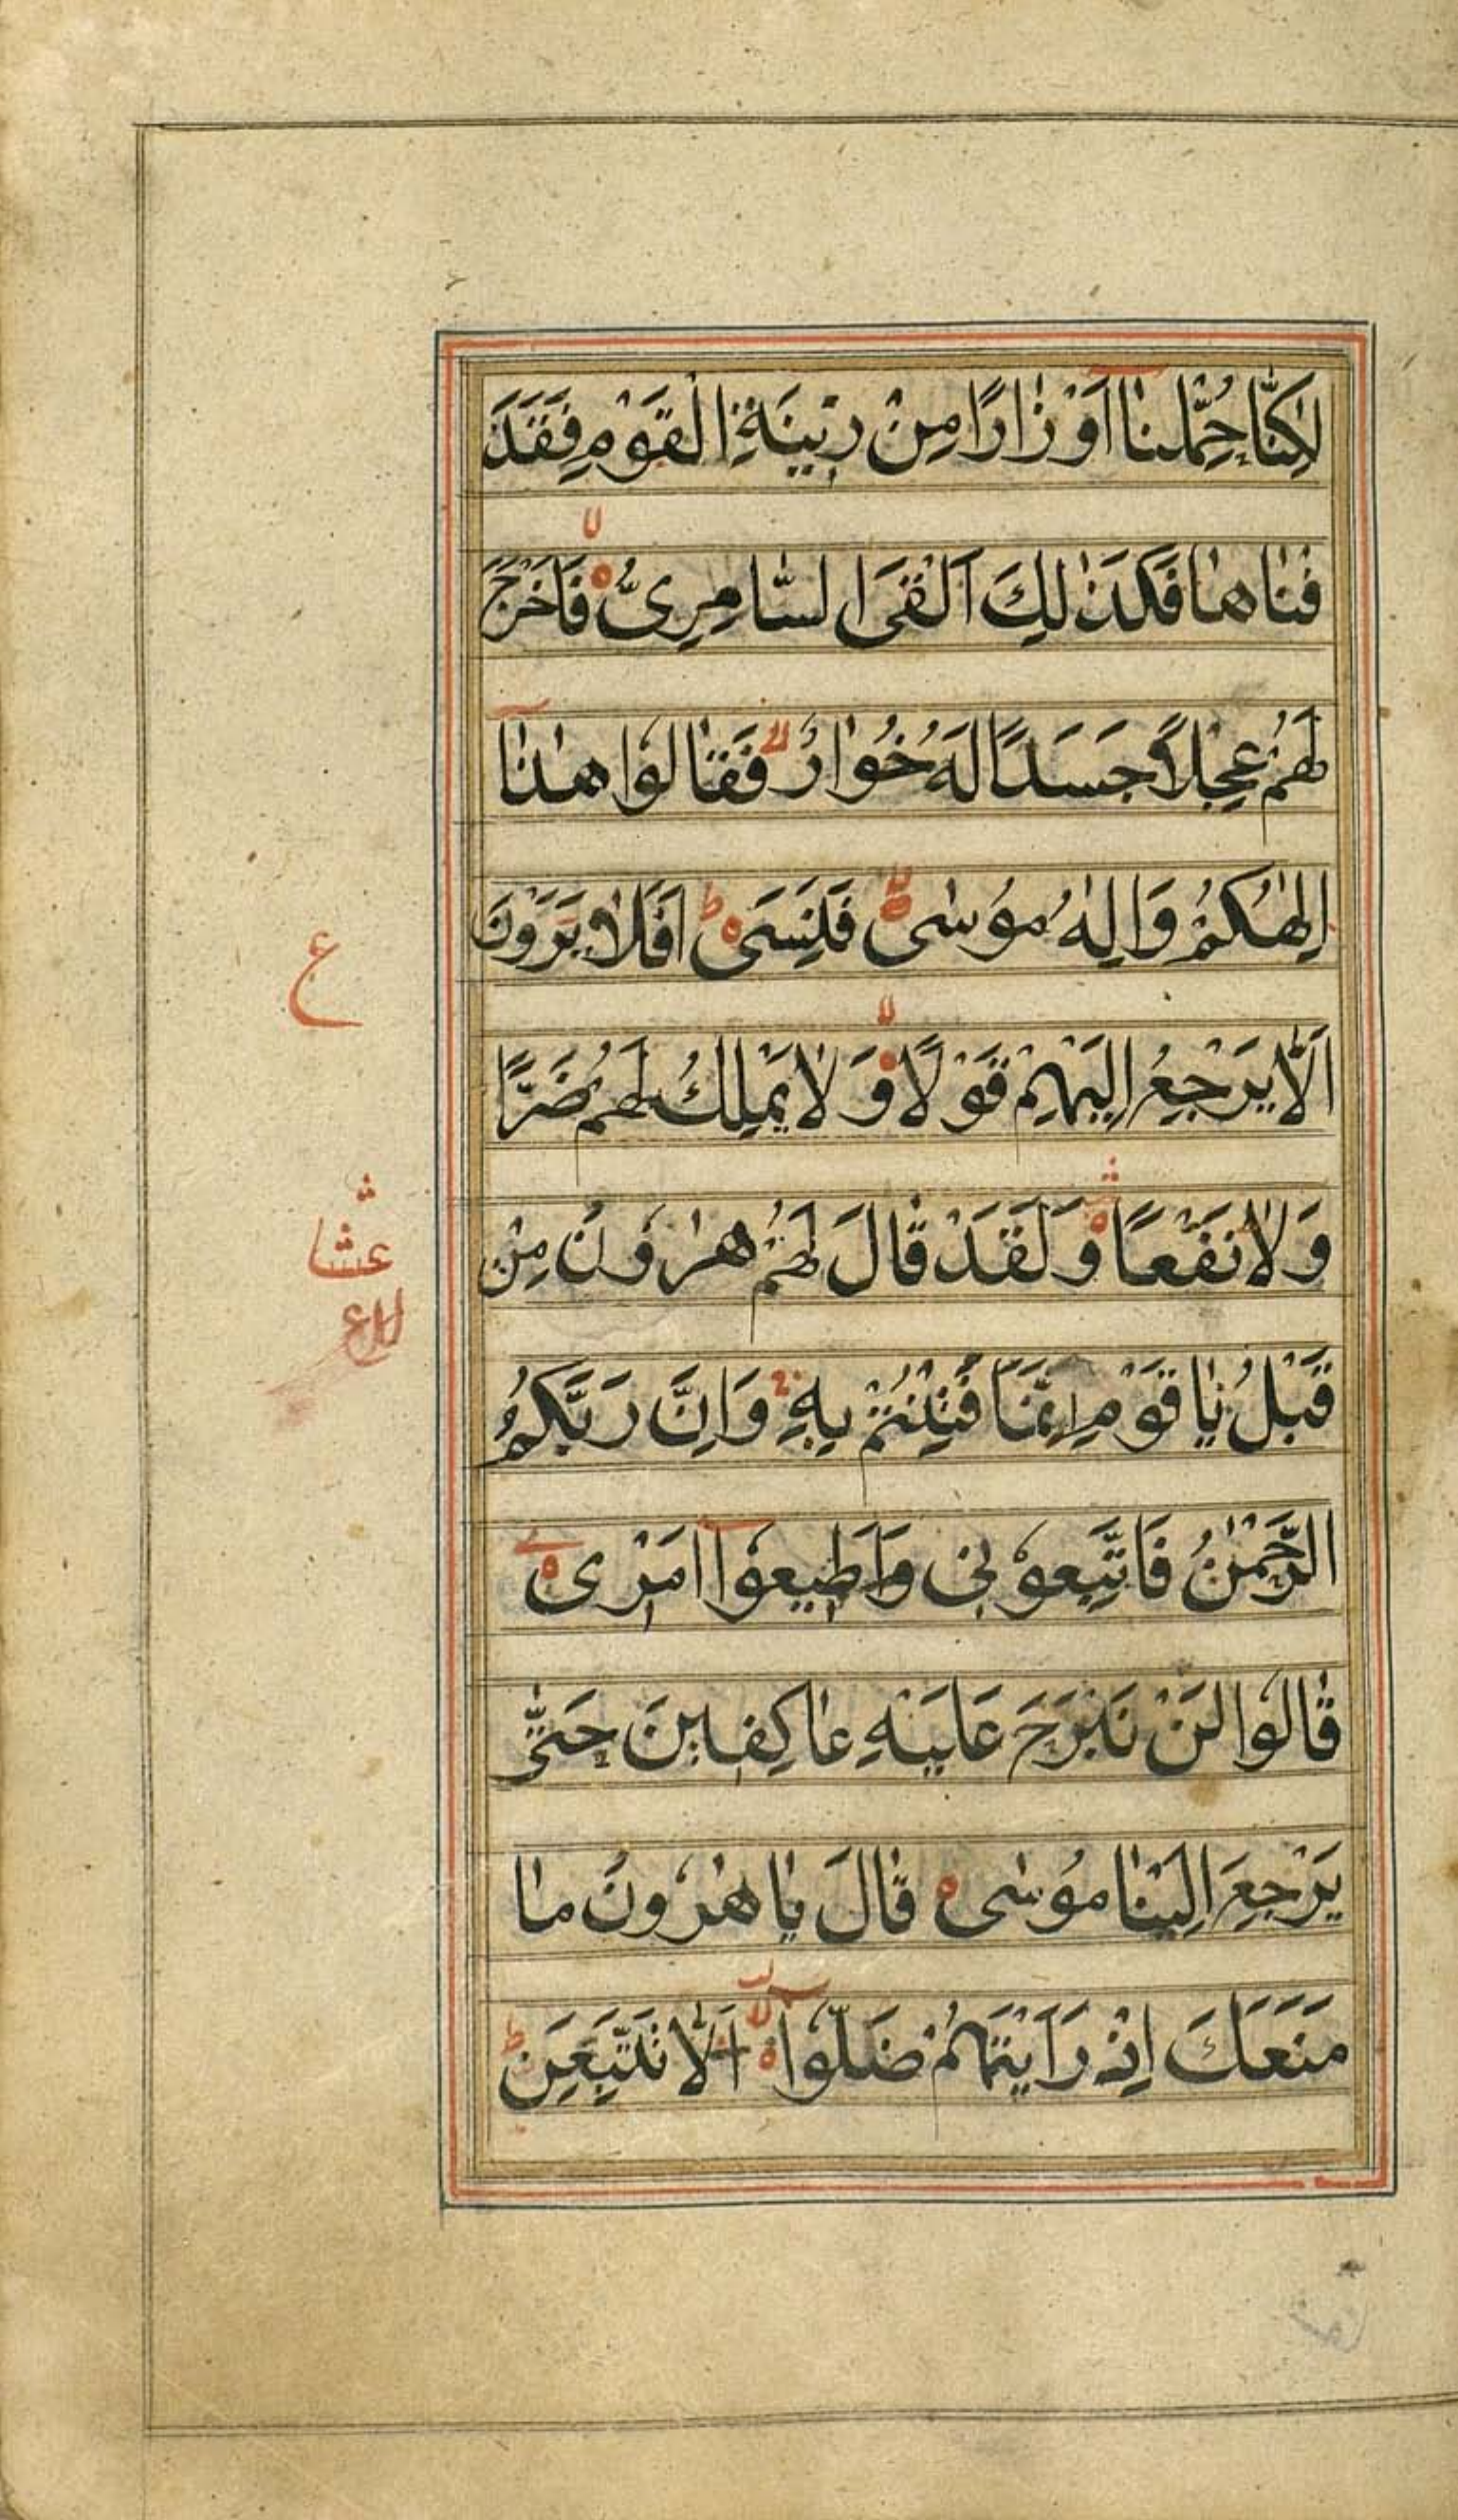 لٰكِنَّا حُمِّلْنٰا اَوْزٰارًا مِنْ زِینَةِ الْقَوْمِ فَقَذَ
فْنٰاهٰا فَكَذٰلِكَ اَلْقَى السّٰامِرِىُّ فَاَخْرَجَ
لَهُمْ عِجْلاً جَسَدًا لَهُ خُوٰارٌ فَقٰالُوا هٰذٰا
اِلٰهُكُمْ وَاِلٰهُ مُوسٰى فَنَسِىَ ط اَفَلاٰ يَرَوْنَ
اَلّٰا يَرْجِعُ اِلَيْهِمْ قَوْلًا وَلاٰ يَمْلِكُ لَهُمْ ضَرًّا
وَلاٰ نَفْعًا وَلَقَدْ قٰالَ لَهُمْ هٰرُونُ مِنْ
قَبْلُ يٰا قَوْمِ اِنَّمَا فُتِنْتُمْ بِهِ وَاِنَّ رَبَّكُمُ
الرَّحْمٰنُ فَاتَّبِعُونِى وَاَطِیعُوا اَمْرِى
قٰالُوا لَنْ نَبْرَحَ عَلَیْهِ عٰاكِفِینَ حَتّٰى
يَرْجِعَ اِلَيْنٰا مُوسٰى قٰالَ يٰا هٰرُونُ مٰا
مَنَعَكَ اِذْ رَاَيْتَهُمْ ضَلُّوا لا اَلّٰا تَتَّبِعَنِ ط
ع
عشا